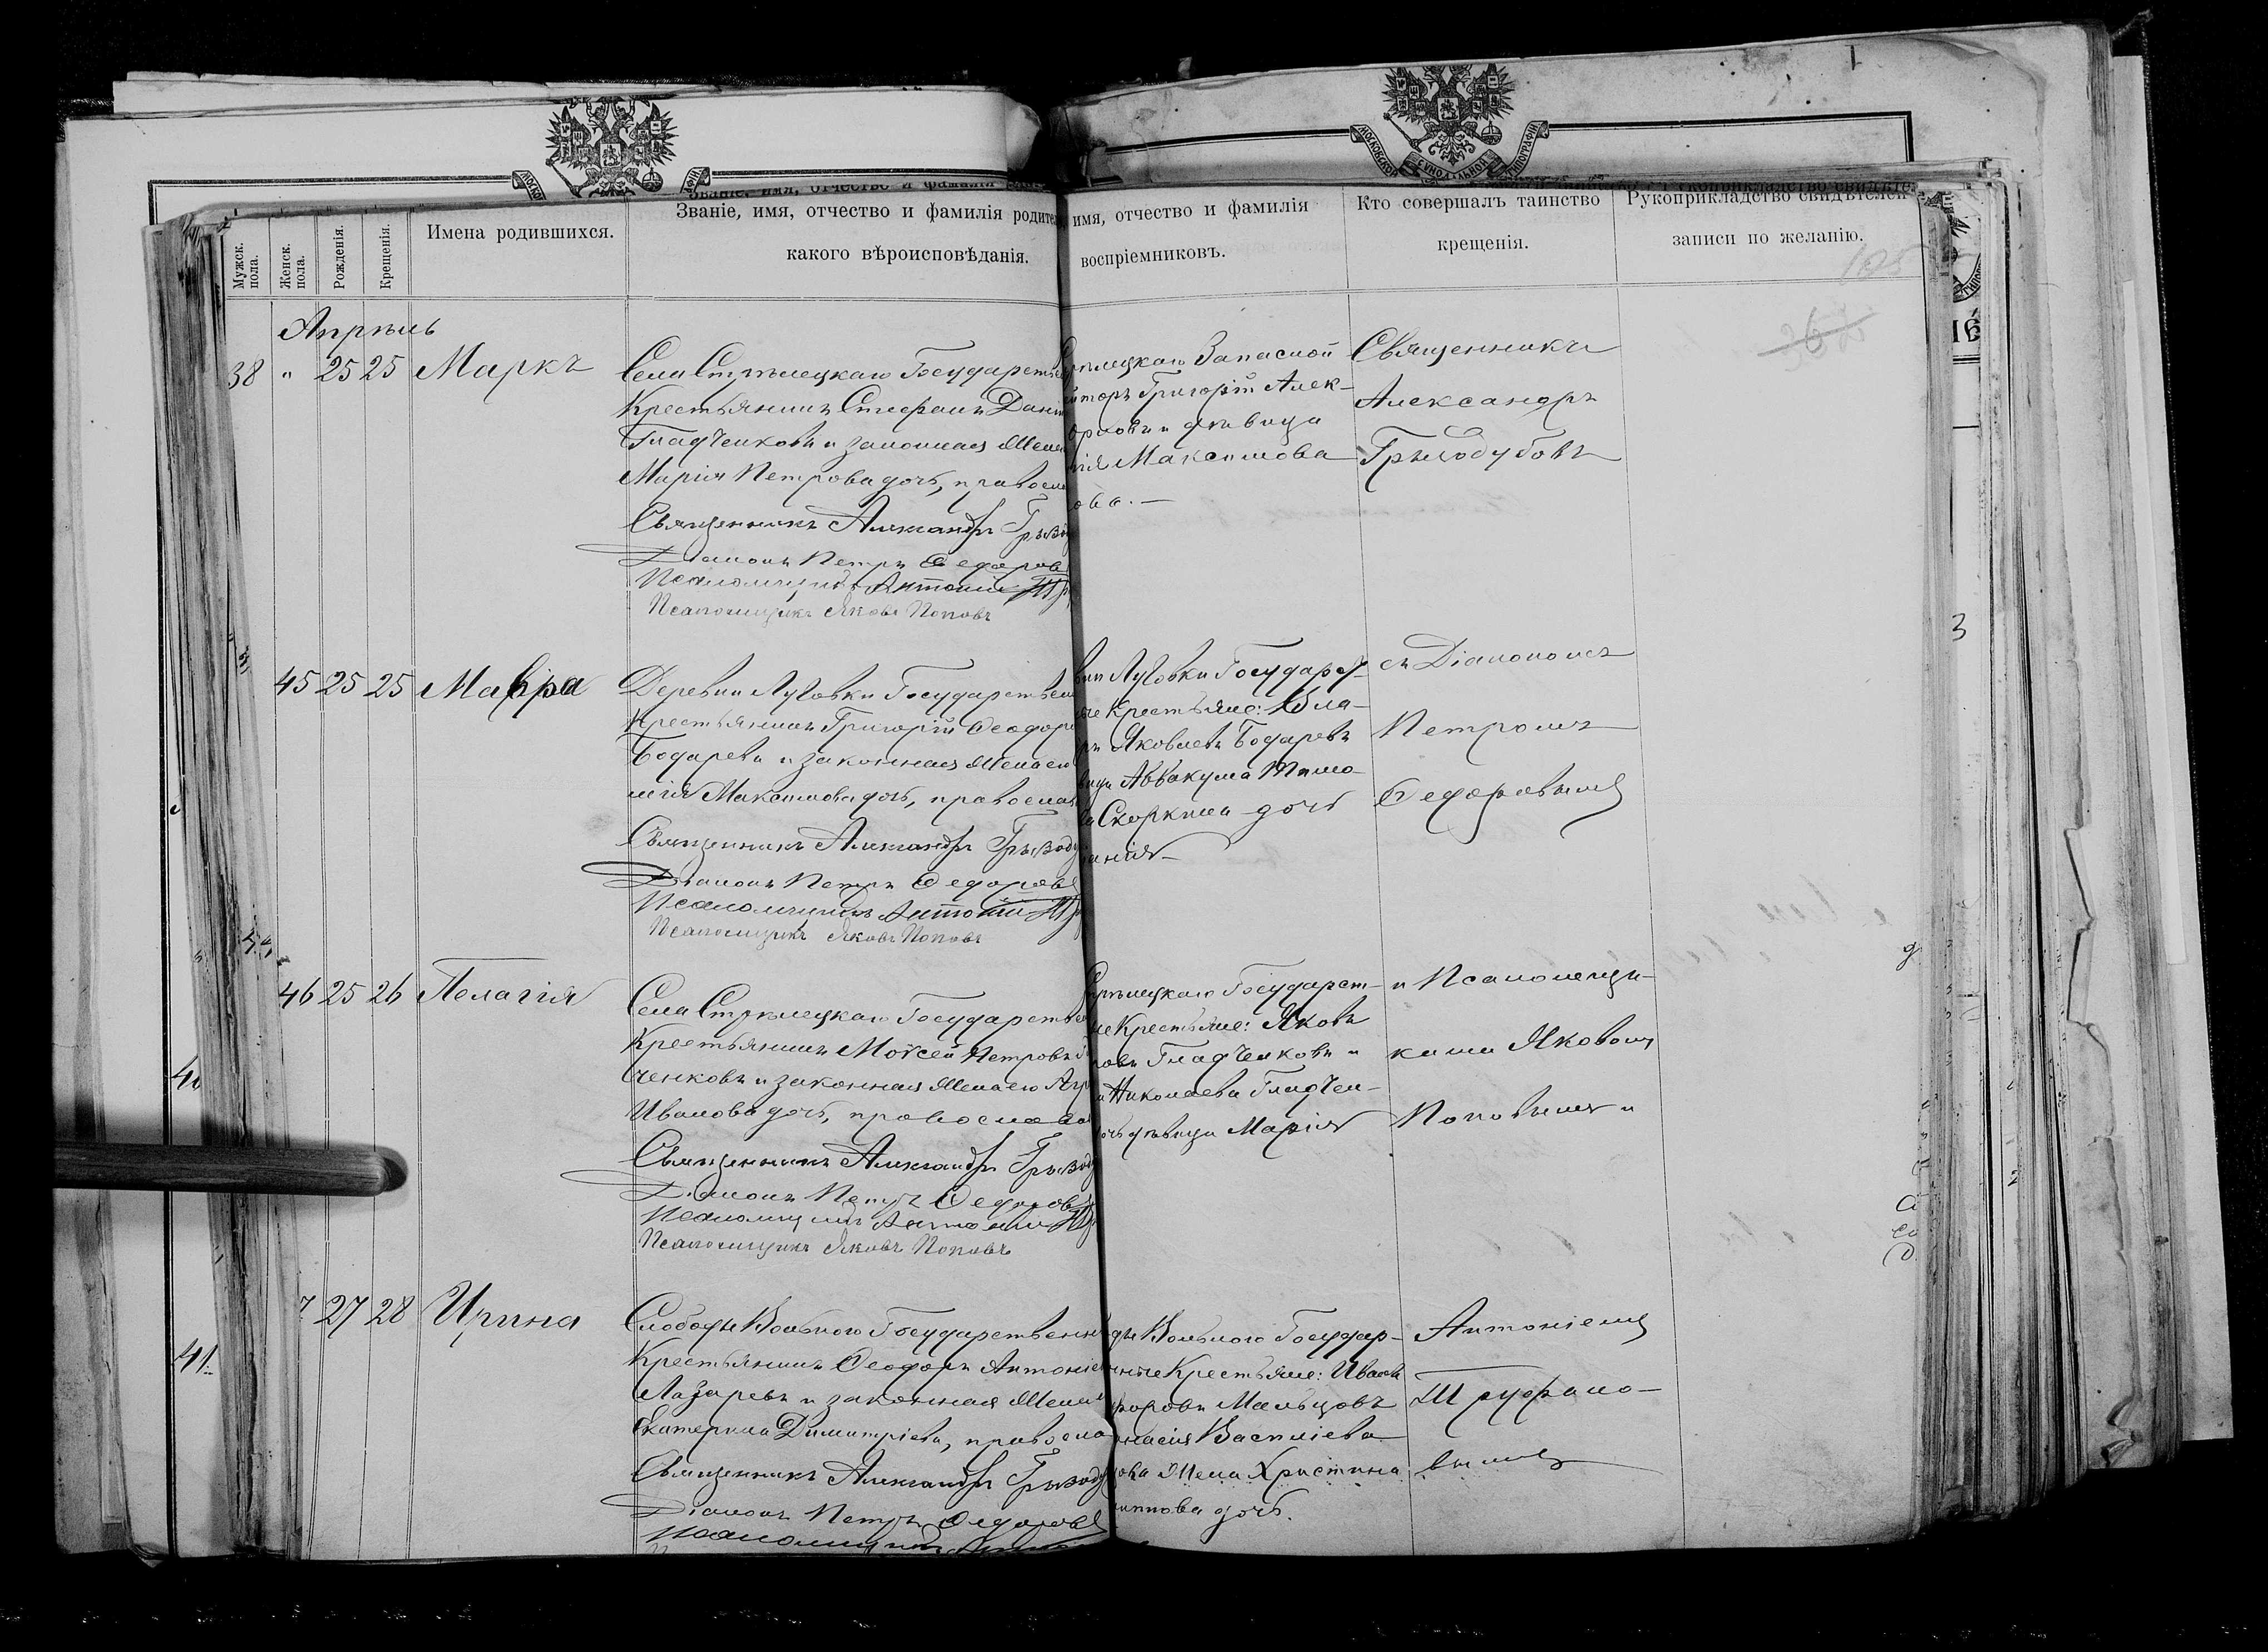 Мужск. пола.
Женск. пола.
Рожденія.
Крещенія.
Имена родившихся.
Званіе, имя, отчество и фамилія родите
какого вѣроисповѣданія.
имя, отчество и фамилія
воспріемниковъ.
Кто совершалъ таинство
крещенія.
Рукоприкладство свидѣтелей
записи по желанію.
Апрѣль
38 " 25 25 Маркъ
Села Стрѣлецкаго Государстве
Крестьянинъ Стефанъ Дани
Гладченковъ и законная Жена
Марія Петрова дочь, правосла
Священникъ Александръ Грызод
Діаконъ Петръ Ѳедоровъ
Псаломщикъ Антоній Т
Псаломщикъ Яковъ Поповъ
рѣлецкаго Запасной
Григорій Алек-
и дѣвица
Максимова
ова. —
Священникъ
Александръ
Грызодубовъ
45 25 25 Мавра
Деревни Луговки Государствен
Крестьянинъ Григорій Ѳеодоро
Бодаревъ и законная Жена его
Максимова дочь, православ
Священникъ Александръ Грызоду
Діаконъ Петръ Ѳедоровъ
Псаломщикъ Антоній Т
Псаломщикъ Яковъ Поповъ
вни Луговки Государст-
ые Крестьяне: Вла-
ръ Яковлевъ Бодаревъ
вица Аввакума Тимо-
Скоркина дочь
анія —
съ Діакономъ
Петромъ
Ѳедоровымъ
46 25 26 Пелагія
Села Стрѣлецкаго Государстве
Крестьянинъ Моѵсей Петровъ Г
ченковъ и законная Жена его Аг
Иванова дочь, православ
Священникъ Александръ Грызод
Діаконъ Петръ Ѳедоровъ
Псаломщикъ Антоній Т
Псаломщикъ Яковъ Поповъ
рѣлецкаго Государст-
ые Крестьяне: Яковъ
ровъ Гладченковъ и
Николаева Гладчен-
дѣвица Марія
и Псаломщи-
ками Яковомъ
Поповымъ и
7 27 28 Ирина
Слободы Вольнаго Государственн
Крестьянинъ Ѳеодоръ Антоніев
Лазаревъ и законная Жена
Екатерина Димитріева, правосла
Священникъ Александръ Грызоду
Діаконъ Петръ Ѳедоровъ
Псаломщикъ
ды Вольнаго Государ-
ные Крестьяне: Иванъ
оровъ Мальцовъ
Василіева
ова Жена Христина
иппова дочь.
Антоніемъ
Труфано-
вымъ
41.